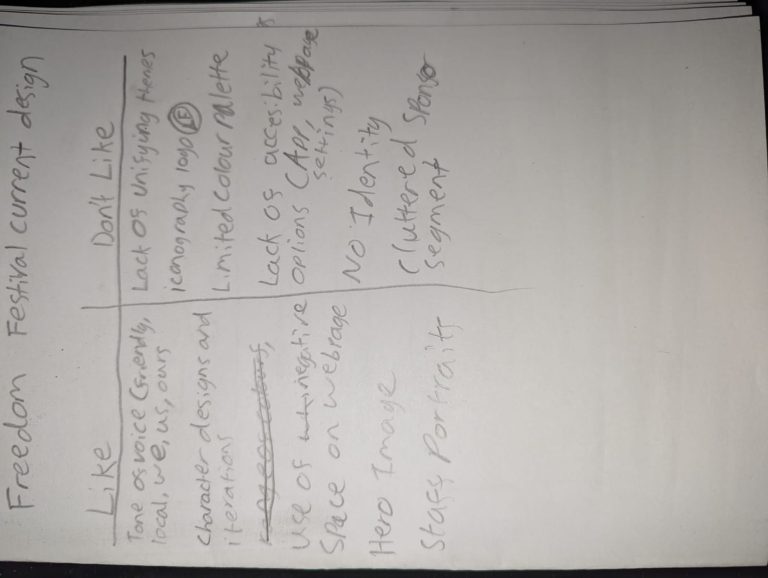 Freedom Festival current design
Like
Tone of voice (friendly,
local, we, us, ours
Character designs and
iterations
Use of negative
Space on webpage
Hero Image
Staff Portraits
Don't Like
Lack of unifying themes
iconography logo
Limited colour palette
Lack of accesibility
options (App, webpage
settings)
No Identity
Cluttered Sponsor
segment